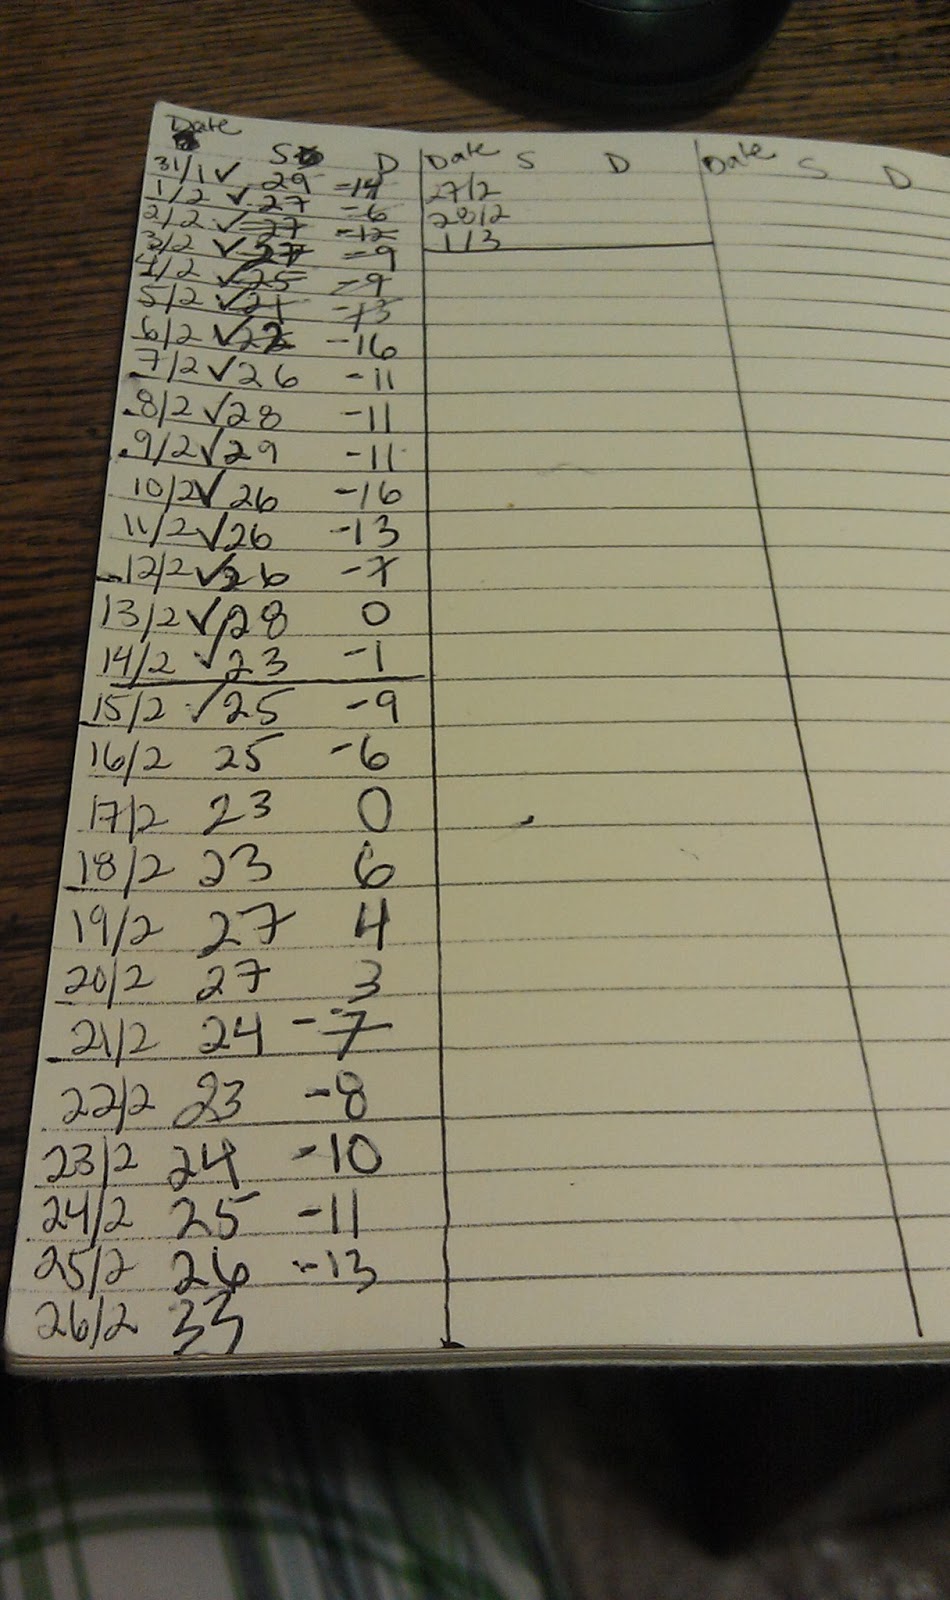 Date S D
31/1 ✓ 29 -14
1/2 ✓ 27 -6
2/2 ✓ 27 -12
3/2 ✓ 27 -9
4/2 ✓ 25 -9
5/2 ✓ 21 -13
6/2 ✓ 22 -16
7/2 ✓ 26 -11
8/2 ✓ 28 -11
9/2 ✓ 29 -11
10/2 ✓ 26 -16
11/2 ✓ 26 -13
12/2 ✓ 26 -7
13/2 ✓ 28 0
14/2 ✓ 23 -1
15/2 ✓ 25 -9
16/2 25 -6
17/2 23 0
18/2 23 6
19/2 27 4
20/2 27 3
21/2 24 -7
22/2 23 -8
23/2 24 -10
24/2 25 -11
25/2 26 -13
26/2 33
Date S D
27/2
28/2
1/3
Date S D